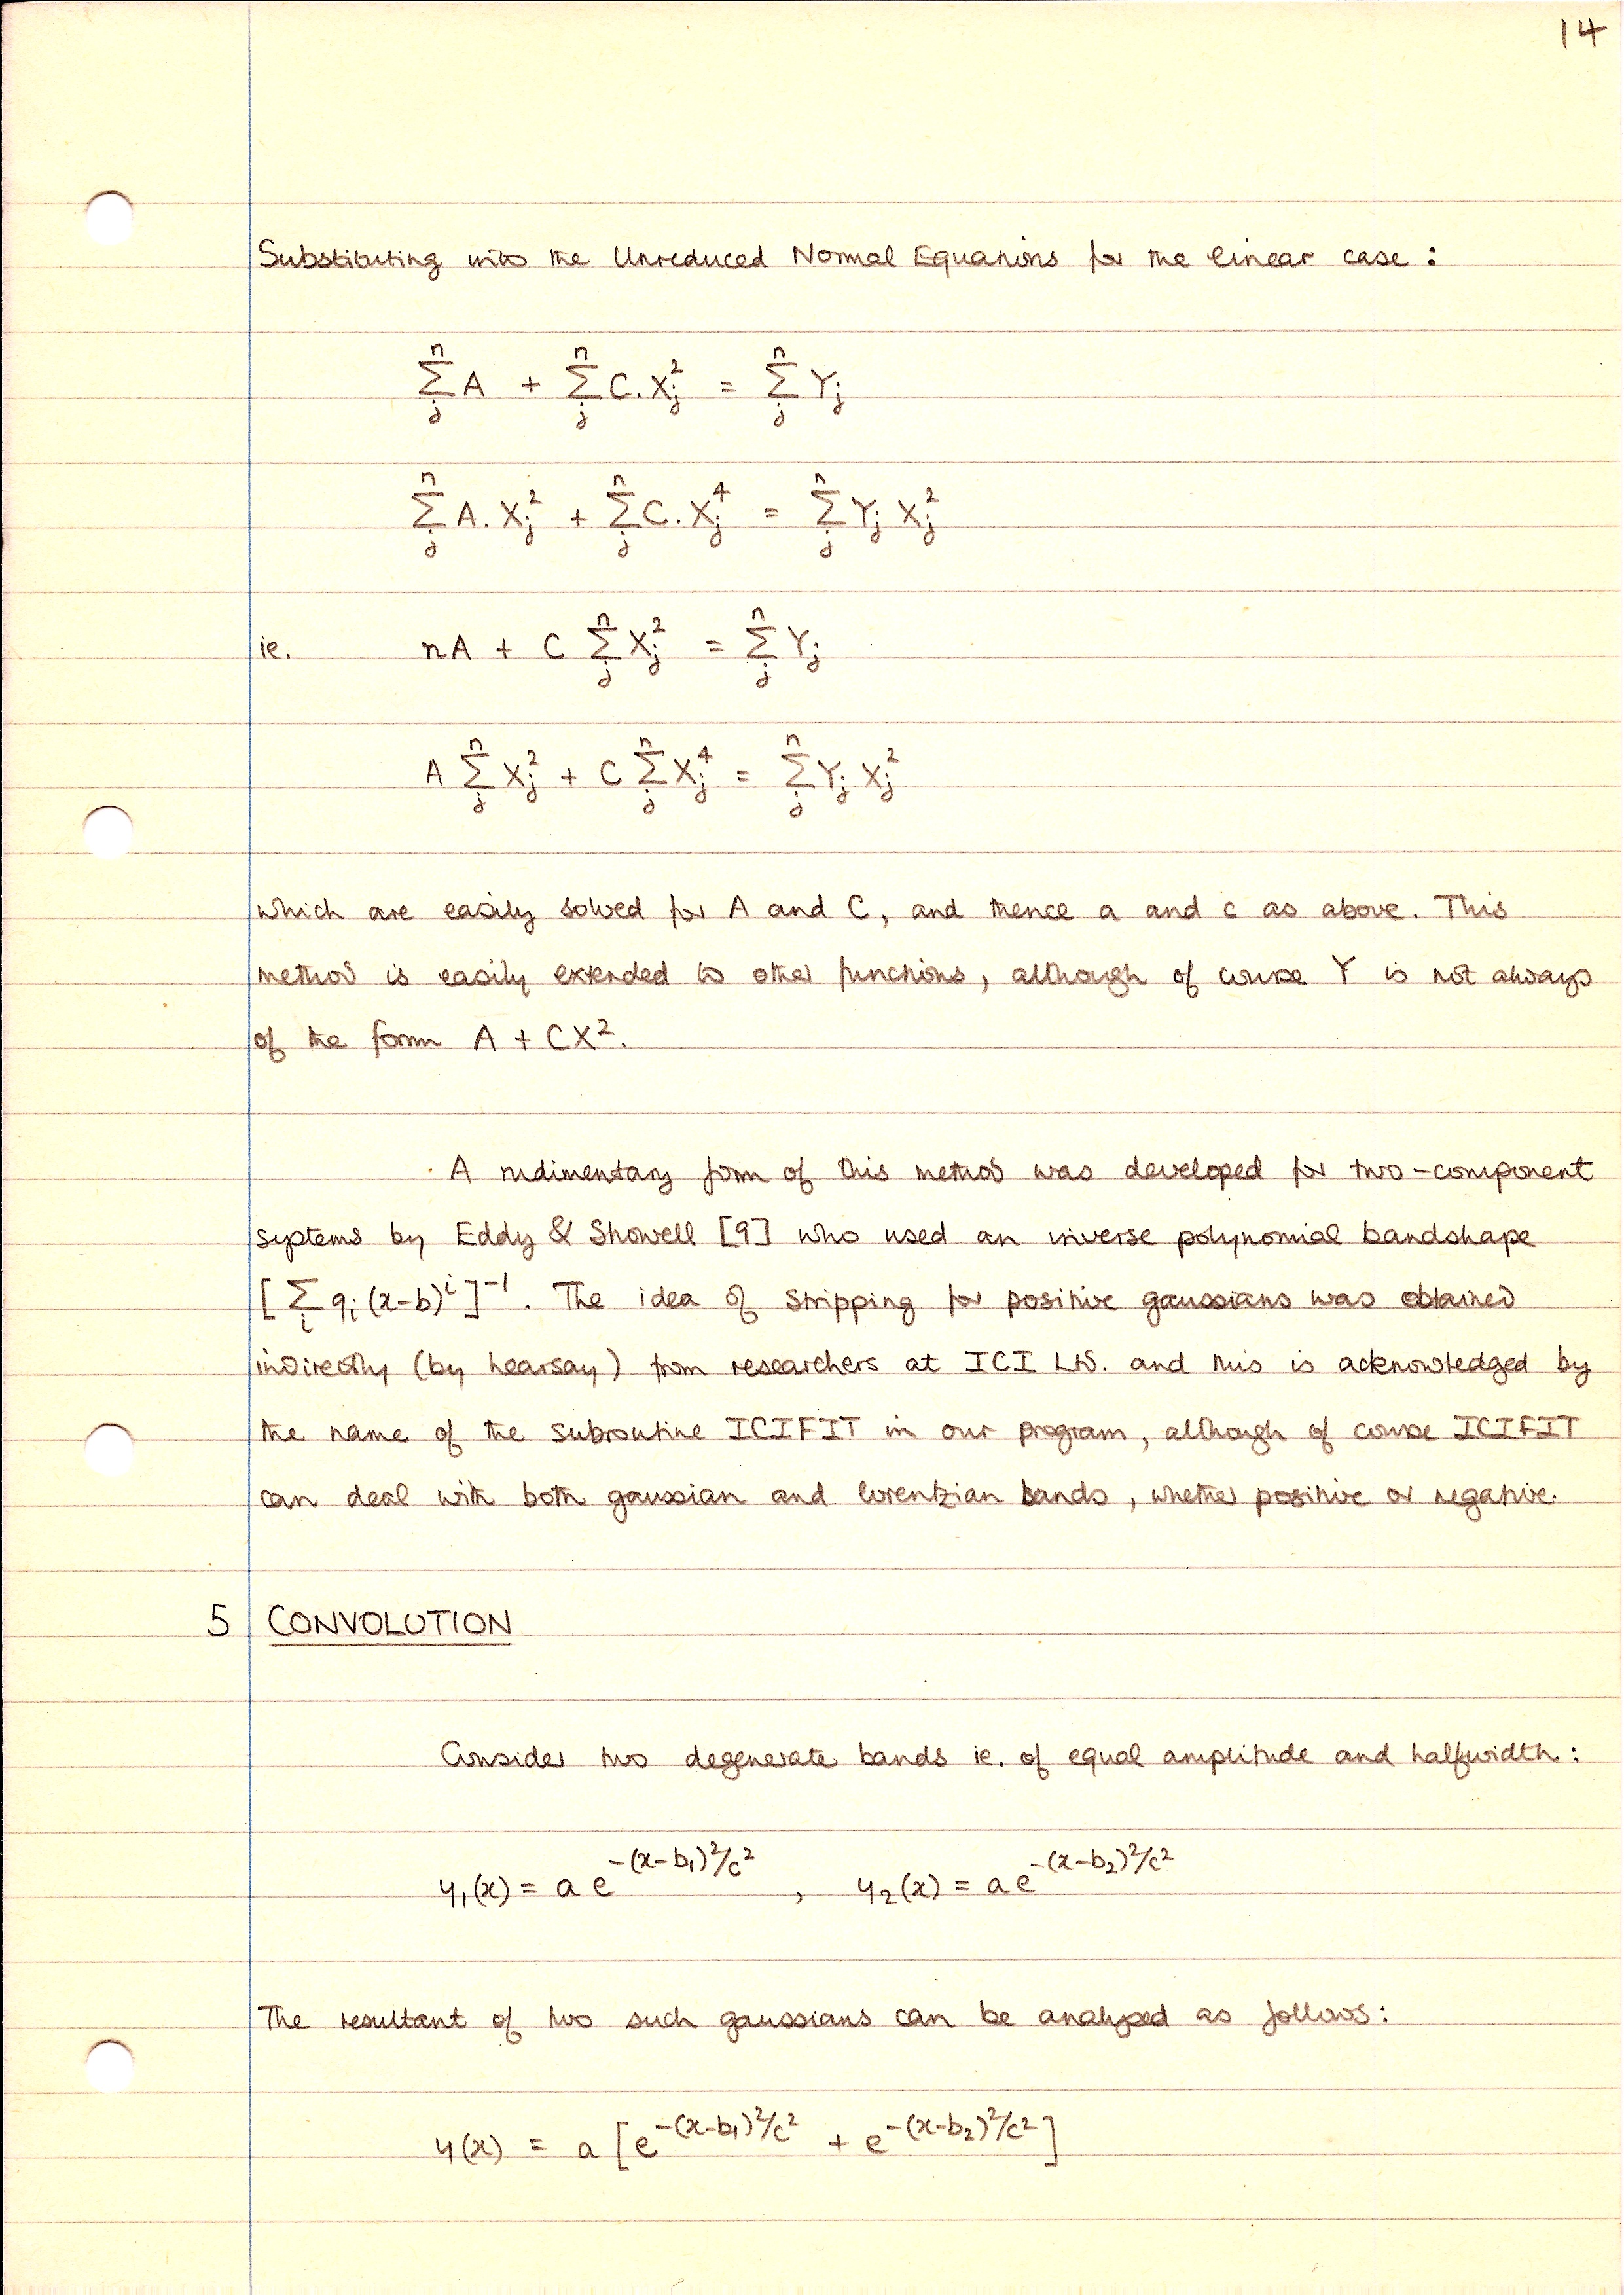 14
Substituting into the Unreduced Normal Equations for the linear case :
n∑j A + n∑j C.Xj² = n∑j Yj
n∑j A.Xj² + n∑j C.Xj⁴ = n∑j Yj Xj²
ie. nA + C n∑j Xj² = n∑j Yj
A n∑j Xj² + C n∑j Xj⁴ = n∑j Yj Xj²
which are easily solved for A and C, and thence a and c as above. This
method is easily extended to other functions, although of course Y is not always
of the form A + CX².
A rudimentary form of this method was developed for two-component
systems by Eddy & Showell [9] who used an inverse polynomial bandshape
[∑i qi (x-b)ⁱ]⁻¹. The idea of stripping for positive gaussians was obtained
indirectly (by hearsay) from researchers at ICI Ltd. and this is acknowledged by
the name of the subroutine ICIFIT in our program, although of course ICIFIT
can deal with both gaussian and lorentzian bands, whether positive or negative.
5 CONVOLUTION
Consider two degenerate bands ie. of equal amplitude and halfwidth :
y₁(x) = a e^-(x-b₁)²/c² , y₂(x) = a e^-(x-b₂)²/c²
The resultant of two such gaussians can be analysed as follows :
y(x) = a [e^-(x-b₁)²/c² + e^-(x-b₂)²/c²]